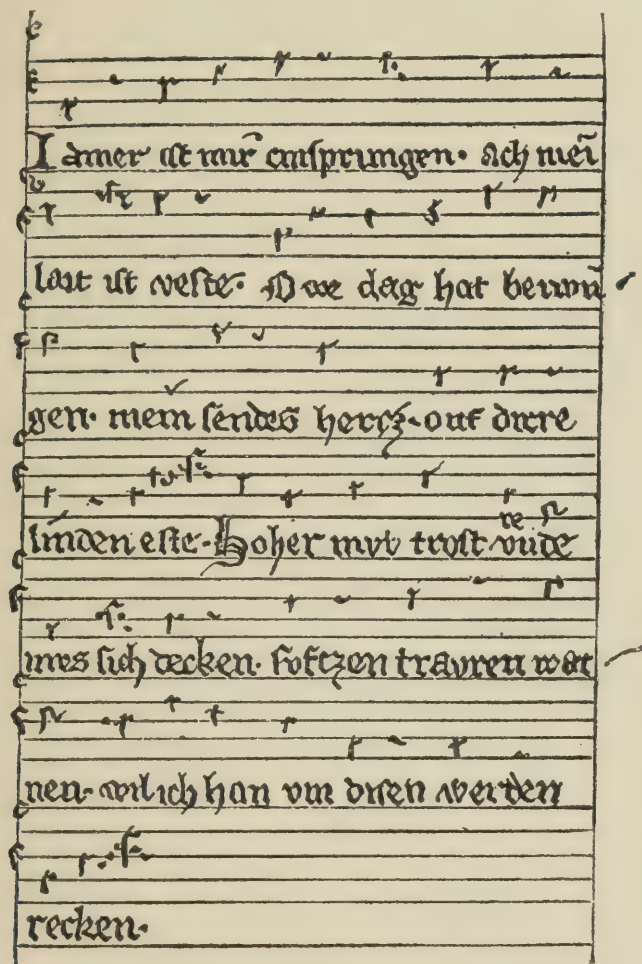 Iamer ist mir entsprungen · ach mei
lait ist veste · Owe dag hat betwū
gen · mein sendes hercz · ouf dirre
linden este · Hoher myt trost vnde
re
mves sich decken · softzen travren wai
nen · wil ich han vm disen werden
recken ·